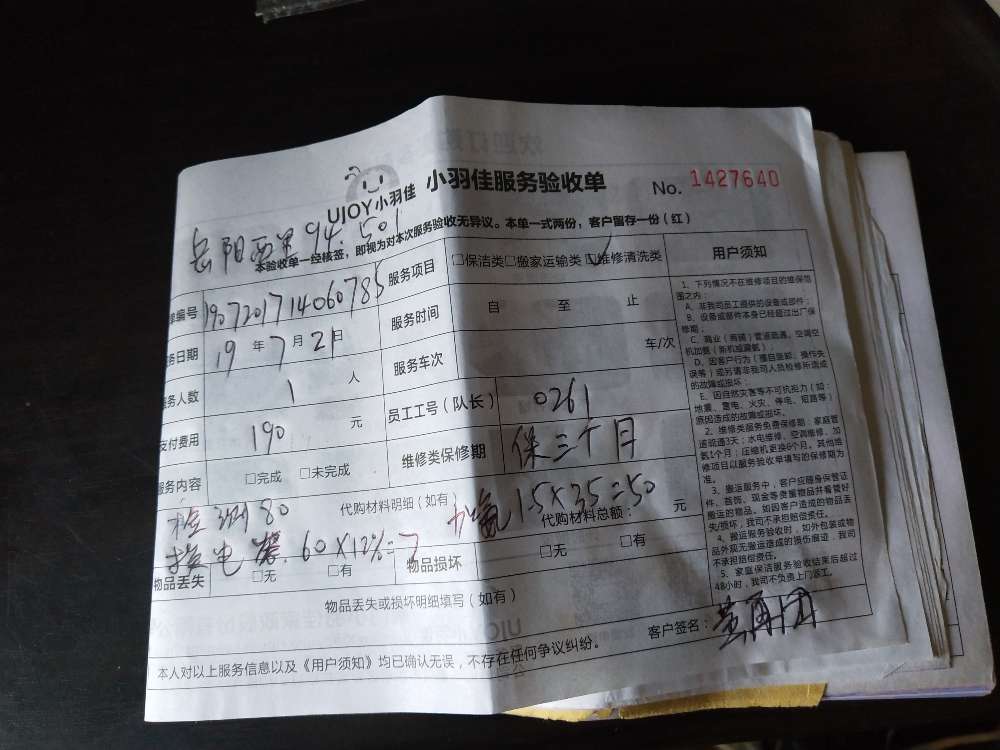 UJOY小羽佳 小羽佳服务验收单 No. 1427640
本验收单一经核签，即视为对本次服务验收无异议。本单一式两份，客户留存一份（红）
岳阳西里94.501
单编号 190720171406078 服务项目 □保洁类□搬家运输类□维修清洗类 用户须知
务日期 19 年 7 月 21日 服务时间 自 至 止
务人数 1 人 服务车次 车/次
支付费用 190 元 员工工号（队长） 0261
服务内容 □完成 □未完成 维修类保修期 保三个月
1、下列情况不在维修项目的维保范
围之内：
A、非我司员工提供的设备或部件；
B、设备或部件本身已经超过出厂保
修期；
C、商业（商铺）管道疏通、空调空
机加氨（新机或漏氨）
D、因客户行为（擅自张贴、操作失
误等）或另请非我司人员检修所造成
的故障或损坏；
E、因自然灾害等不可抗拒力（如：
地震、雷电、火灾、停电、短路等）
原因造成的故障或损坏。
2、维修类服务免费保修期：家庭管
道疏通3天；水电维修、空调维修、加
氨1个月；压缩机更换6个月。其他维
修项目以服务验收单填写的保修期为
准。
3、搬运服务中，客户应随身保管证
件、首饰、现金等贵重物品并看管好
搬运的物品。如因客户造成的物品丢
失/损坏，我司不承担赔偿责任。
4、搬运服务验收时，如外包装或物
品外观无搬运造成的损伤痕迹，我司
不承担赔偿责任。
5、家庭保洁服务验收结束后超过
48小时，我司不负责上门派工。
检测80 代购材料明细（如有） 加氨1.5X35=50
换电容.60X12%=7 代购材料总额： 元
物品丢失 □无 □有 物品损坏 □无 □有
物品丢失或损坏明细填写（如有）
本人对以上服务信息以及《用户须知》均已确认无误，不存在任何争议纠纷。 客户签名：